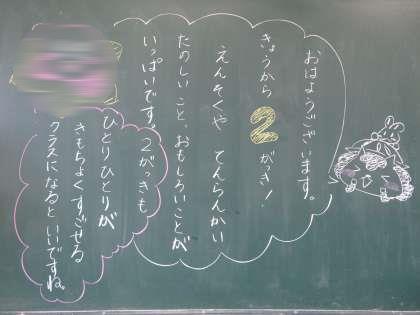 おはようございます。
きょうから２がっき！
えんそくや てんらんかい
たのしいこと、おもしろいことが
いっぱいです。２がっきも
ひとりひとりが
きもちよくすごせる
クラスになると いいですね。